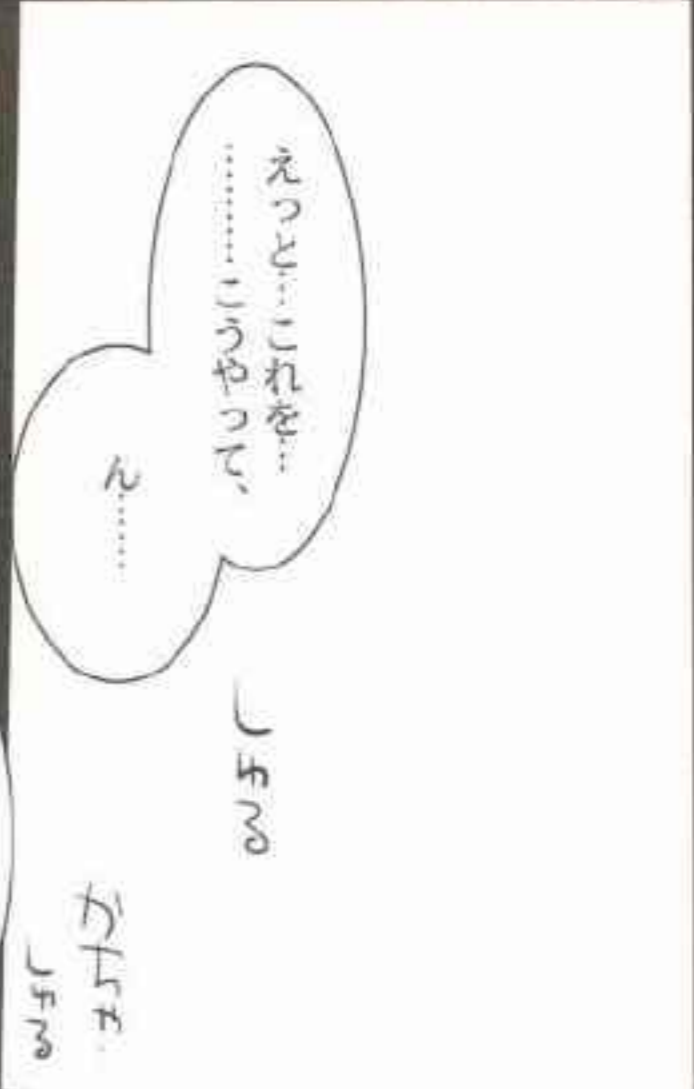 えっと…これを…
…………こうやって、
ん………
しゅる
かちゃ
しゅる